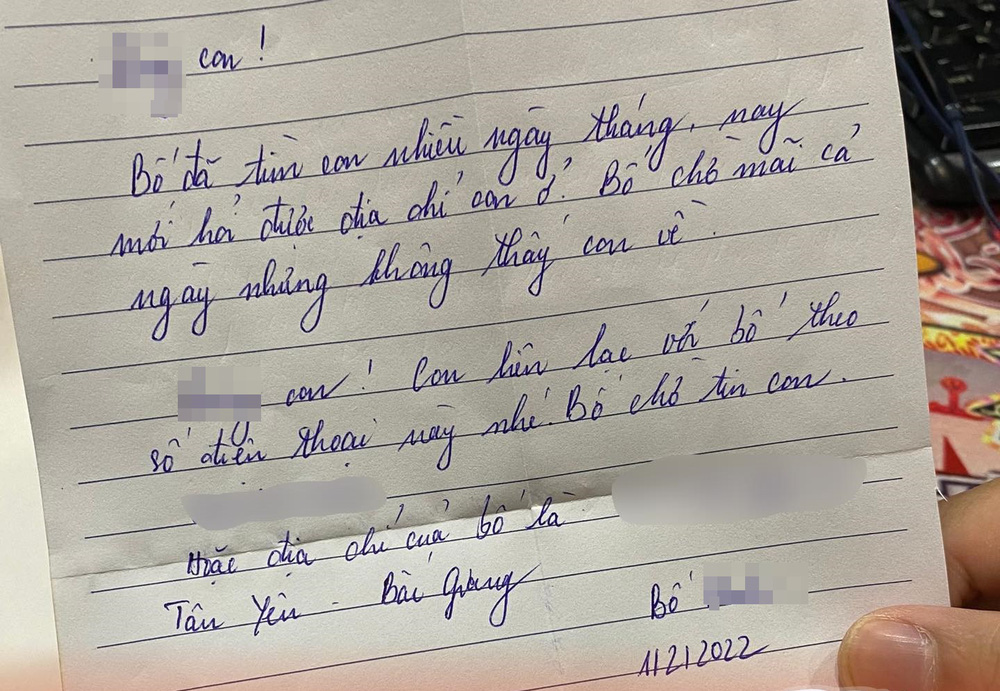 con!
Bố đã tìm con nhiều ngày tháng, nay
mới hỏi được địa chỉ con ở. Bố chờ mãi cả
ngày nhưng không thấy con về.
con! Con liên lạc với bố theo
số điện thoại này nhé. Bố chờ tin con.
Hoặc địa chỉ của bố là
Tân Yên - Bắc Giang
Bố
11/2/2022